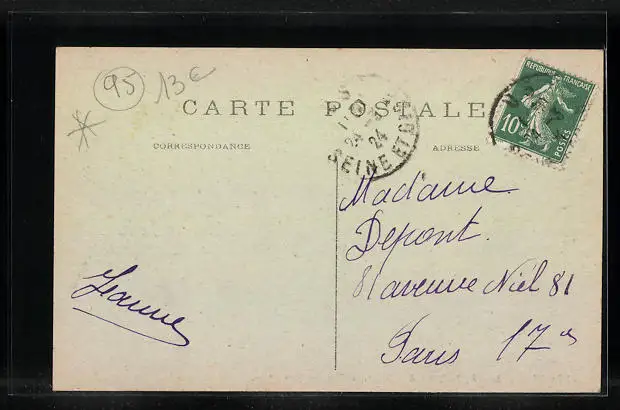 95 13 €
CARTE POSTALE
CORRESPONDANCE
ADRESSE
REPUBLIQUE FRANÇAISE
10
POSTES
24
24
SEINE ET OISE
Madame
Depont.
81 avenue Niél 81
Paris 17e
Jeanne